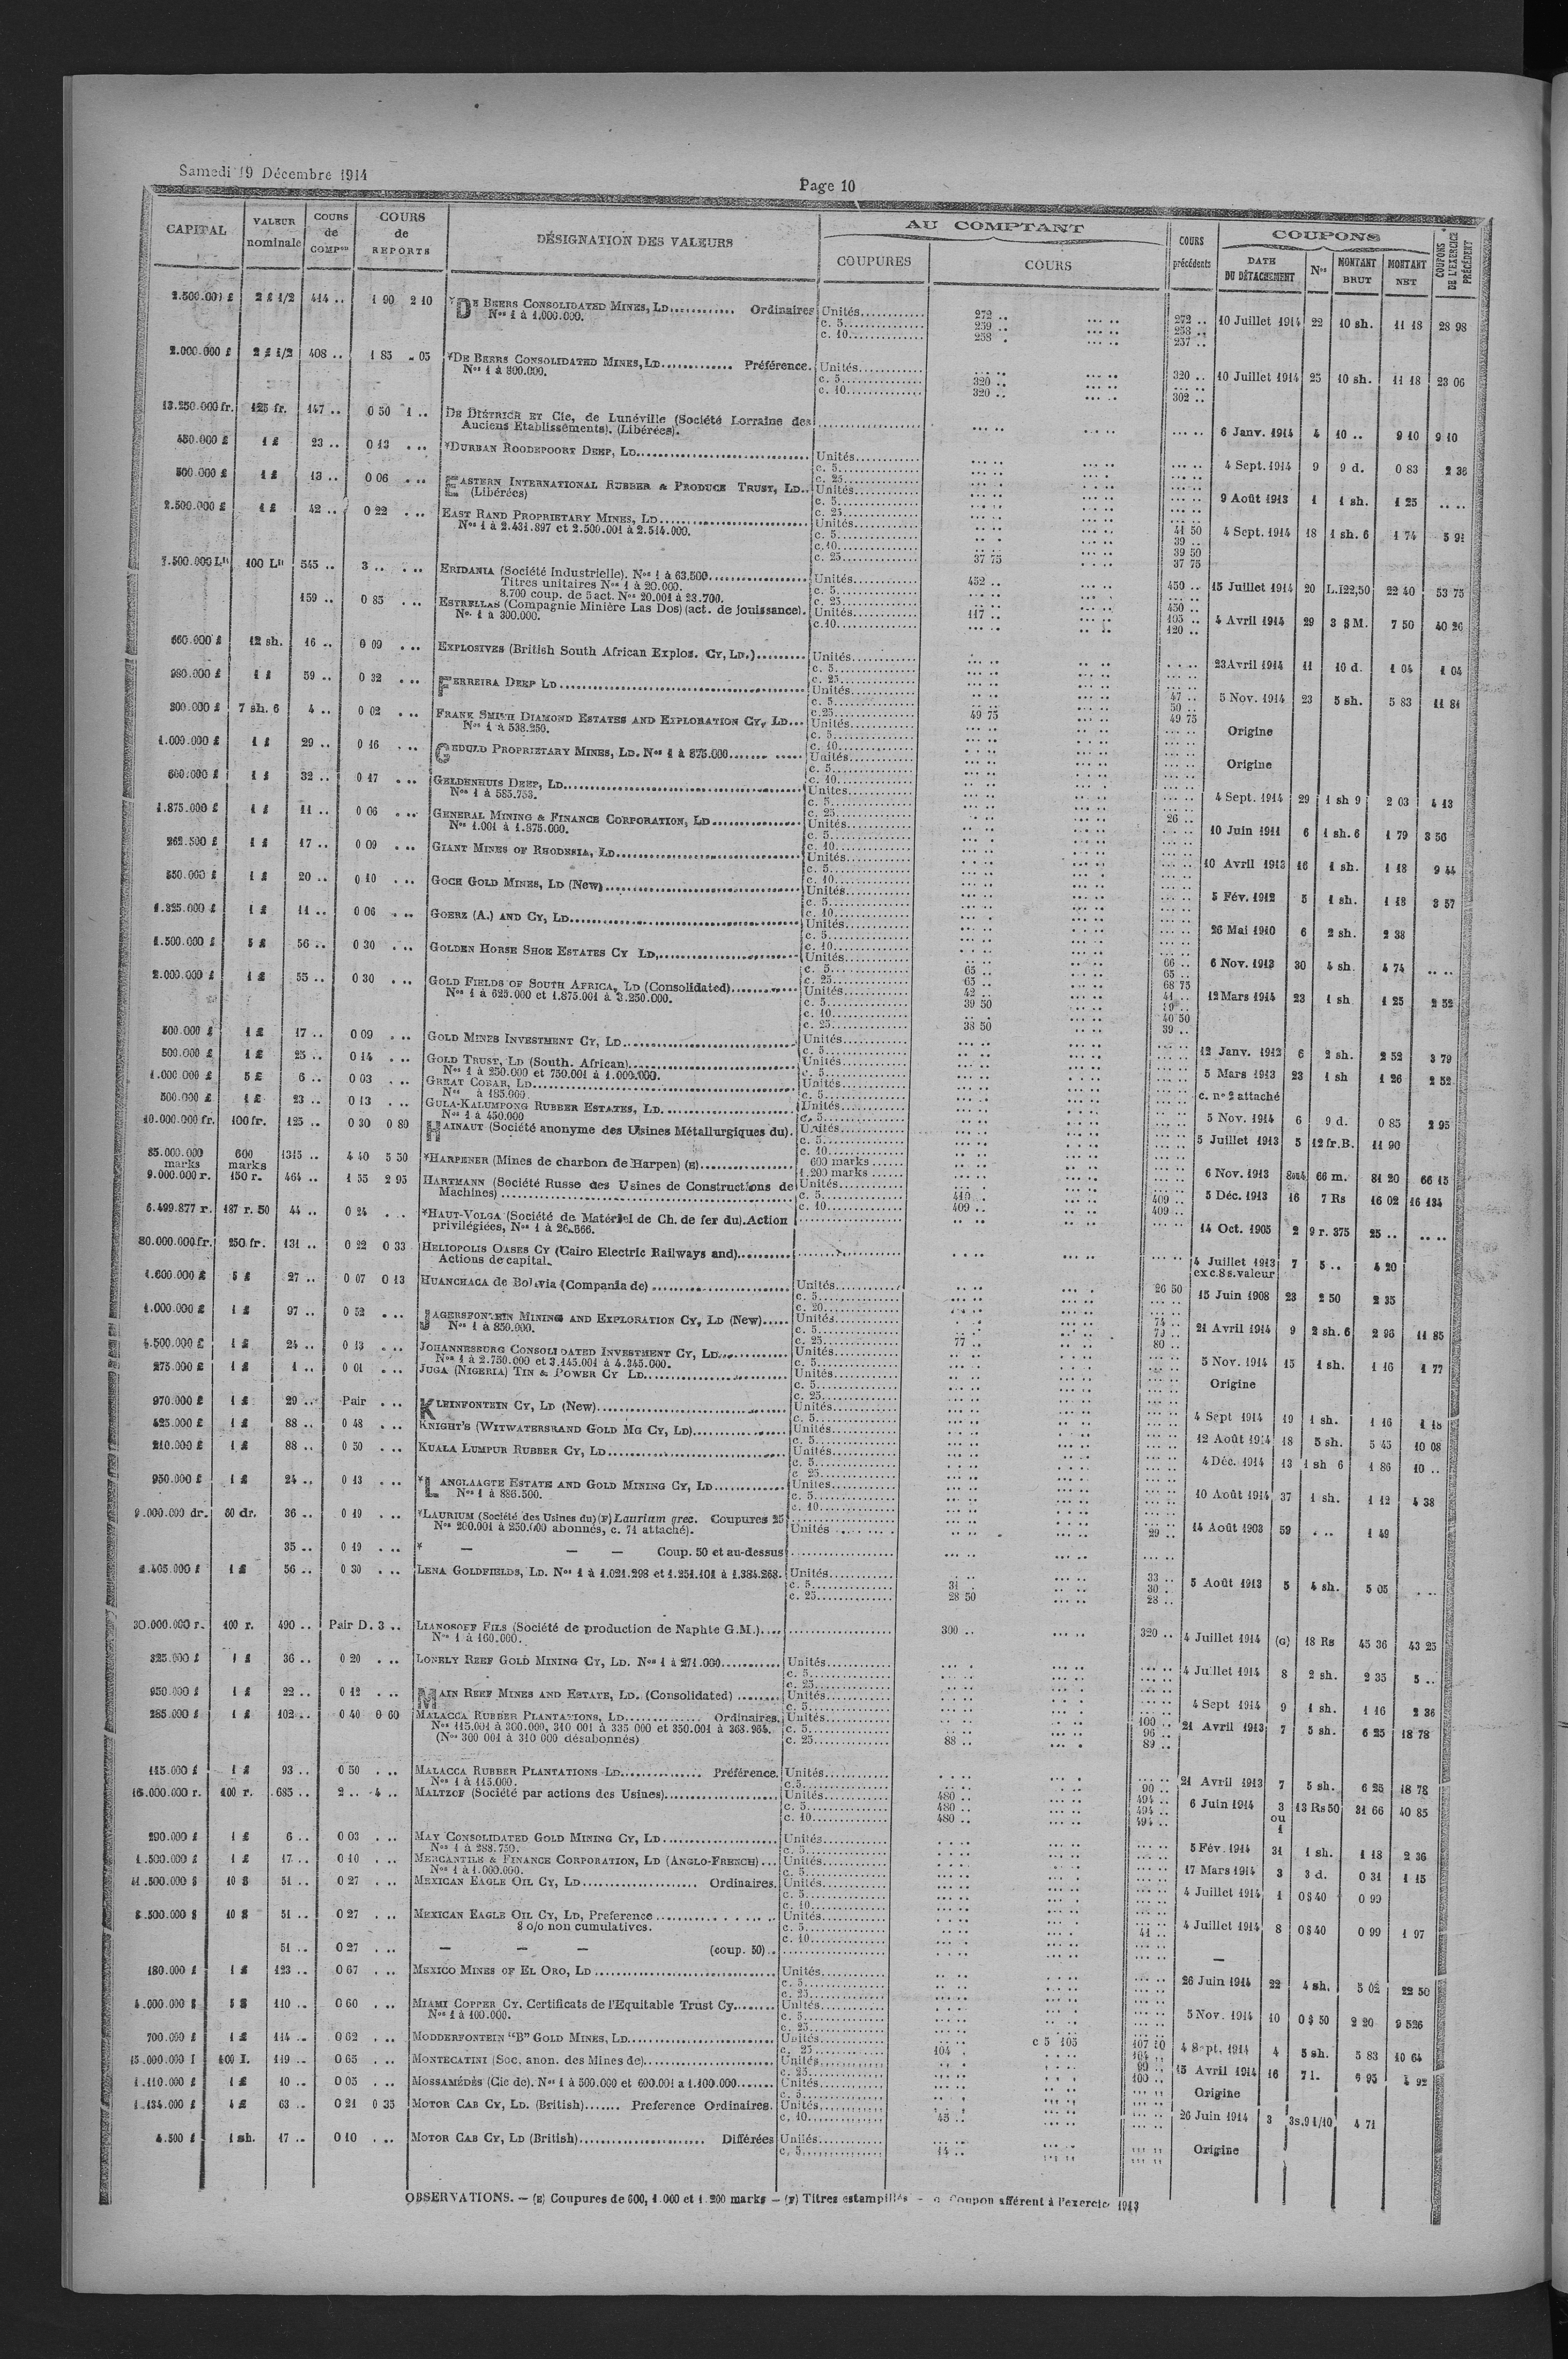 Samedi 19 Décembre 1914
Page 10
CAPITAL VALEUR nominale COURS de COMPon COURS de REPORTS DÉSIGNATION DES VALEURS AU COMPTANT COUPURES COURS COURS précédents COUPONS DATE DU DÉTACHEMENT Nos MONTANT BRUT MONTANT NET COUPONS DE L'EXERCICE PRÉCÉDENT
2.500.000 £ 2 £ 1/2 414 .. 1 90 2 10 *DE BEERS CONSOLIDATED MINES, LD............ Ordinaires Unités 272 .. 272 .. 10 Juillet 1914 22 10 sh. 11 18 28 98
Nos 1 à 1.000.000. c. 5 259 .. 258 ..
c. 10 258 . 257 ..
2.000.000 £ 2 £ 1/2 408 .. 1 85 .. 05 *DE BEERS CONSOLIDATED MINES, LD............ Préférence. Unités ... .. 320 .. 10 Juillet 1914 25 10 sh. 11 18 23 06
Nos 1 à 800.000. c. 5 320 ..
c. 10 320 .. 302 ..
13.250.000 fr. 125 fr. 147 .. 0 50 1 .. DE DIÉTRICH ET Cie, de Lunéville (Société Lorraine des
Anciens Etablissements). (Libérées). 6 Janv. 1914 4 10 .. 9 10 9 10
450.000 £ 1 £ 23 .. 0 13 . .. *DURBAN ROODEPOORT DEEP, LD Unités 4 Sept. 1914 9 9 d. 0 83 2 36
c. 5
c. 25
500.000 £ 1 £ 13 .. 0 06 . .. EASTERN INTERNATIONAL RUBBER & PRODUCE TRUST, LD.. Unités 9 Août 1913 1 1 sh. 1 25
(Libérées) c. 5
c. 25
2.500.000 £ 1 £ 42 .. 0 22 . .. EAST RAND PROPRIETARY MINES, LD Unités 41 50 4 Sept. 1914 18 1 sh. 6 1 74 5 91
Nos 1 à 2.431.897 et 2.500.001 à 2.514.000. c. 5 39 ..
c. 10 39 50
c. 25 37 75 37 75
7.500.000 Lit 100 Lit 545 .. 3 .. . .. ERIDANIA (Société Industrielle). Nos 1 à 63.500 Unités 452 .. 450 .. 15 Juillet 1914 20 L.I22,50 22 40 53 75
Titres unitaires Nos 1 à 20.000. c. 5
8.700 coup. de 5 act. Nos 20.001 à 23.700. c. 25 450 ..
159 .. 0 85 . .. ESTRELLAS (Compagnie Minière Las Dos) (act. de jouissance). Unités 117 .. 105 .. 4 Avril 1914 29 3 $ M. 7 50 40 26
Nos 1 à 300.000. c. 10 120 ..
660.000 £ 12 sh. 16 .. 0 09 . .. EXPLOSIVES (British South African Explos. CY, LD.) Unités 23 Avril 1914 11 10 d. 1 04 1 04
c. 5
c. 25
980.000 £ 1 £ 59 .. 0 32 . .. FERREIRA DEEP LD Unités 47 .. 5 Nov. 1914 23 5 sh. 5 83 11 81
c. 5 50 ..
c. 25 49 75 49 75
300.000 £ 7 sh. 6 4 .. 0 02 . .. FRANK SMITH DIAMOND ESTATES AND EXPLORATION CY, LD... Unités Origine
Nos 1 à 538.250. c. 5
c. 10
1.000.000 £ 1 £ 29 .. 0 16 . .. GEDULD PROPRIETARY MINES, LD. Nos 1 à 875.000 Unités Origine
c. 5
c. 10
600.000 £ 1 £ 32 .. 0 17 . .. GELDENHUIS DEEP, LD Unités 4 Sept. 1914 29 1 sh 9 2 03 4 13
Nos 1 à 585.753. c. 5
c. 25 26 ..
1.875.000 £ 1 £ 11 .. 0 06 . .. GENERAL MINING & FINANCE CORPORATION, LD Unités 10 Juin 1911 6 1 sh. 6 1 79 3 56
Nos 1.001 à 1.875.000. c. 5
c. 10
262.500 £ 1 £ 17 .. 0 09 . .. GIANT MINES OF RHODESIA, LD Unités 10 Avril 1913 16 1 sh. 1 18 9 44
c. 5
c. 10
550.000 £ 1 £ 20 .. 0 10 . .. GOCH GOLD MINES, LD (New) Unités 5 Fév. 1912 5 1 sh. 1 18 3 57
c. 5
c. 10
1.325.000 £ 1 £ 11 .. 0 06 . .. GOERZ (A.) AND CY, LD Unités 26 Mai 1910 6 2 sh. 2 38
c. 5
c. 10
1.500.000 £ 5 £ 56 .. 0 30 . .. GOLDEN HORSE SHOE ESTATES CY LD Unités 66 .. 6 Nov. 1913 30 4 sh. 4 74
c. 5 65 .. 65 ..
c. 25 65 .. 68 75
2.000.000 £ 1 £ 55 .. 0 30 . .. GOLD FIELDS OF SOUTH AFRICA, LD (Consolidated) Unités 42 .. 41 .. 12 Mars 1914 23 1 sh 1 25 2 52
Nos 1 à 625.000 et 1.875.001 à 3.250.000. c. 5 39 50
c. 10 40 50
c. 25 38 50 39 ..
500.000 £ 1 £ 17 .. 0 09 . .. GOLD MINES INVESTMENT CY, LD Unités 12 Janv. 1912 6 2 sh. 2 52 3 79
c. 5
500.000 £ 1 £ 25 .. 0 14 . .. GOLD TRUST, LD (South. African) Unités 5 Mars 1913 23 1 sh 1 26 2 52
Nos 1 à 250.000 et 750.001 à 1.000.000. c. 5
1.000.000 £ 5 £ 6 .. 0 03 . .. GREAT COBAR, LD Unités c. no 2 attaché
Nos à 185.000. c. 5
500.000 £ 1 £ 23 .. 0 13 . .. GULA-KALUMPONG RUBBER ESTATES, LD Unités 5 Nov. 1914 6 9 d. 0 85 2 95
Nos 1 à 450.000 c. 5
10.000.000 fr. 100 fr. 125 .. 0 30 0 80 HAINAUT (Société anonyme des Usines Métallurgiques du). Unités 5 Juillet 1913 5 12 fr.B. 11 90
c. 5
c. 10
85.000.000 marks 600 marks 1315 .. 4 40 5 50 *HARPENER (Mines de charbon de Harpen) (E) 600 marks 6 Nov. 1913 66 m. 81 20 66 15
1.200 marks
9.000.000 r. 150 r. 464 .. 1 55 2 95 HARTMANN (Société Russe des Usines de Constructions de Unités 5 Déc. 1913 16 7 Rs 16 02 16 134
Machines) c. 5 410 .. 409 ..
c. 10 409 .. 409 ..
6.499.877 r. 187 r. 50 44 .. 0 24 . .. *HAUT-VOLGA (Société de Matériel de Ch. de fer du). Action 14 Oct. 1905 2 9 r. 375 25 ..
privilégiées, Nos 1 à 26.666.
80.000.000 fr. 250 fr. 131 .. 0 22 0 33 HELIOPOLIS OASES CY (Cairo Electric Railways and) 4 Juillet 1913 7 5 .. 4 20
Actions de capital. ex c.8 s.valeur
1.600.000 £ 5 £ 27 .. 0 07 0 13 HUANCHACA de Bolivia (Compania de) Unités 26 50 15 Juin 1908 23 2 50 2 35
c. 5
c. 20
1.000.000 £ 1 £ 97 .. 0 52 . .. JAGERSFONTEIN MINING AND EXPLORATION CY, LD (New) Unités 74 .. 21 Avril 1914 9 2 sh. 6 2 96 11 85
Nos 1 à 850.000. c. 5 79 ..
c. 25 77 .. 80 ..
4.500.000 £ 1 £ 24 .. 0 13 . .. JOHANNESBURG CONSOLIDATED INVESTMENT CY, LD Unités 5 Nov. 1914 15 1 sh. 1 16 1 77
Nos 1 à 2.750.000 et 3.145.001 à 4.345.000. c. 5
275.000 £ 1 £ 1 .. 0 01 . .. JUGA (NIGERIA) TIN & POWER CY LD Unités Origine
c. 5
c. 25
970.000 £ 1 £ 29 .. Pair . .. KLEINFONTEIN CY, LD (New) Unités 4 Sept 1914 19 1 sh. 1 16 1 18
c. 5
425.000 £ 1 £ 88 .. 0 48 . .. KNIGHT'S (WITWATERSRAND GOLD MG CY, LD) Unités 12 Août 1914 18 5 sh. 5 45 10 08
c. 5
210.000 £ 1 £ 88 .. 0 50 . .. KUALA LUMPUR RUBBER CY, LD Unités 4 Déc. 1914 13 1 sh 6 1 86 10 ..
c. 5
c. 25
950.000 £ 1 £ 24 .. 0 13 . .. *LANGLAAGTE ESTATE AND GOLD MINING CY, LD Unités 10 Août 1914 37 1 sh. 1 12 4 38
Nos 1 à 886.500. c. 5
c. 10
9.000.000 dr. 60 dr. 36 .. 0 19 . .. *LAURIUM (Société des Usines du) (F) Laurium grec. Coupures 25 14 Août 1903 59 . .. 1 49
Nos 200.001 à 250.000 abonnés, c. 71 attaché). Unités 29 ..
35 .. 0 19 . .. * — — — Coup. 50 et au-dessus
1.405.000 £ 1 £ 56 .. 0 30 . .. LENA GOLDFIELDS, LD. Nos 1 à 1.021.298 et 1.251.101 à 1.384.268. Unités 33 .. 5 Août 1913 5 4 sh. 5 05
c. 5 31 . 30 ..
c. 25 28 50 28 ..
30.000.000 r. 100 r. 490 .. Pair D. 3 .. LIANOSOFF FILS (Société de production de Naphte G.M.) 300 .. 320 .. 4 Juillet 1914 (G) 18 Rs 45 36 43 25
Nos 1 à 160.000.
325.000 £ 1 £ 36 .. 0 20 . .. LONELY REEF GOLD MINING CY, LD. Nos 1 à 271.000 Unités 4 Juillet 1914 8 2 sh. 2 35 5 ..
c. 5
c. 25
950.000 £ 1 £ 22 .. 0 12 . .. MAIN REEF MINES AND ESTATE, LD. (Consolidated) Unités 4 Sept 1914 9 1 sh. 1 16 2 36
c. 5
285.000 £ 1 £ 102 .. 0 40 0 60 MALACCA RUBBER PLANTATIONS, LD Ordinaires. Unités 100 .. 21 Avril 1913 7 5 sh. 6 25 18 78
Nos 115.001 à 300.000, 310 001 à 335 000 et 350.001 à 363.964. c. 5 96 ..
(Nos 300 001 à 310 000 désabonnés) c. 25 88 .. 89 ..
115.000 £ 1 £ 93 .. 0 50 . .. MALACCA RUBBER PLANTATIONS LD Préférence. Unités 21 Avril 1913 7 5 sh. 6 25 18 78
Nos 1 à 115.000. c. 5 90 ..
16.000.000 r. 100 r. 685 .. 2 .. 4 .. MALTZOF (Société par actions des Usines) Unités 480 .. 494 .. 6 Juin 1914 3 ou 1 13 Rs 50 31 66 40 85
c. 5 480 .. 494 ..
c. 10 480 .. 494 ..
290.000 £ 1 £ 6 .. 0 03 . .. MAY CONSOLIDATED GOLD MINING CY, LD Unités 5 Fév. 1914 31 1 sh. 1 18 2 36
Nos 1 à 288.750. c. 5
1.500.000 £ 1 £ 17 .. 0 10 . .. MERCANTILE & FINANCE CORPORATION, LD (ANGLO-FRENCH) Unités 17 Mars 1914 3 3 d. 0 31 1 15
Nos 1 à 1.000.000. c. 5
41.500.000 $ 10 $ 51 .. 0 27 . .. MEXICAN EAGLE OIL CY, LD Ordinaires. Unités 4 Juillet 1914 1 0 $ 40 0 99
c. 5
c. 10
8.500.000 $ 10 $ 51 .. 0 27 . .. MEXICAN EAGLE OIL CY, LD, Preference Unités 4 Juillet 1914 8 0 $ 40 0 99 1 97
8 o/o non cumulatives. c. 5 41 ..
c. 10
51 .. 0 27 . .. — — — (coup. 50) —
180.000 £ 1 £ 123 .. 0 67 . .. MEXICO MINES OF EL ORO, LD Unités 26 Juin 1914 22 4 sh. 5 02 22 50
c. 5
c. 25
4.000.000 $ 5 $ 110 .. 0 60 . .. MIAMI COPPER CY. Certificats de l'Equitable Trust Cy Unités 5 Nov. 1914 10 0 $ 50 2 20 9 526
Nos 1 à 100.000. c. 5
c. 25
700.000 £ 1 £ 114 .. 0 62 . .. MODDERFONTEIN "B" GOLD MINES, LD Unités c 5 105 107 50 4 Sept. 1914 4 5 sh. 5 83 10 64
c. 25 104 . 104 ..
15.000.000 I 100 I. 119 .. 0 65 . .. MONTECATINI (Soc. anon. des Mines de) Unités 99 .. 15 Avril 1914 16 7 l. 6 95 4 92
c. 25 100 ..
1.110.000 £ 1 £ 10 .. 0 05 . .. MOSSAMÉDÈS (Cie de). Nos 1 à 500.000 et 600.001 a 1.100.000 Unités Origine
c. 5
1.134.000 £ 4 £ 63 .. 0 21 0 35 MOTOR CAB CY, LD. (British) Preference Ordinaires. Unités 26 Juin 1914 3 3s.9 1/10 4 71
c. 10 45 ..
4.500 £ 1 sh. 17 .. 0 10 . .. MOTOR CAB CY, LD (British) Différées Unités Origine
c. 5 14 ..
OBSERVATIONS. — (E) Coupures de 600, 1.000 et 1.200 marks — (F) Titres estampillés — Coupon afférent à l'exercice 1913